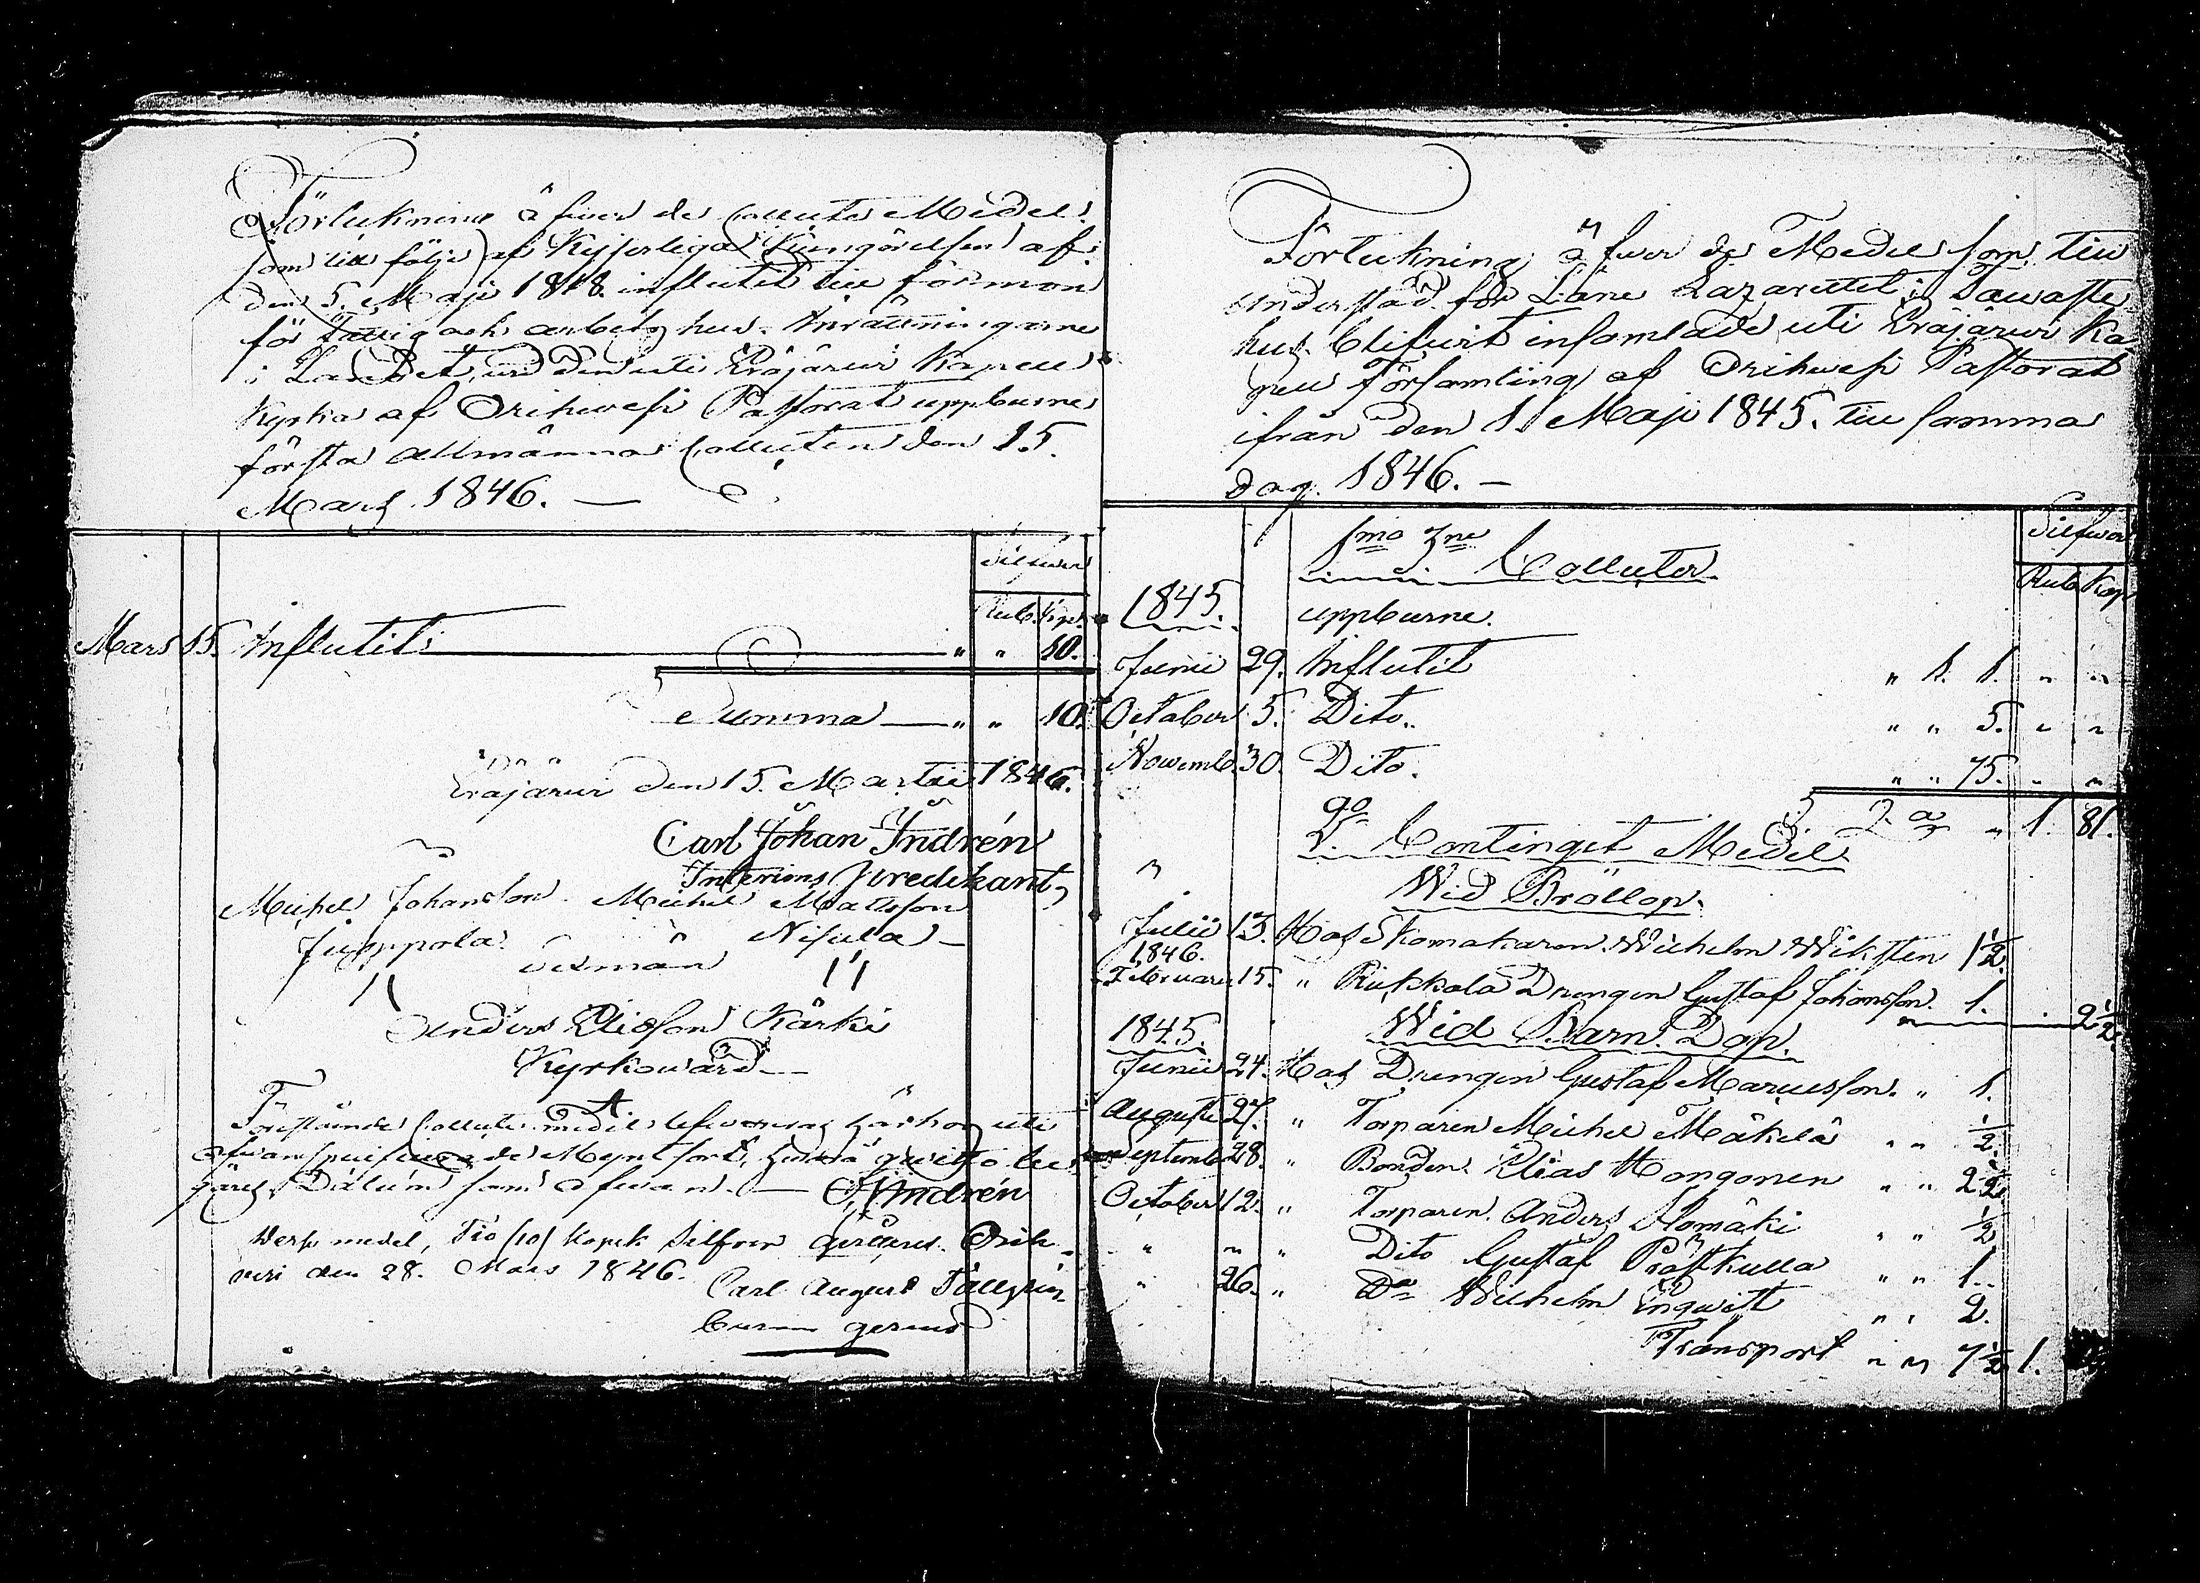 Förtekning öfwer de Collecte Medel
som till följe af Kejserliga Kungörelsen af
den 5. Maji 1818. influtit till förmon
för Fattig och arbetshus Inrättningarne
i Landet, wid den uti Eräjärwi Kapell
Kyrka af Orihwesi Pastorat uppburne
första allmänna Collecten den 15.
Mars 1846. —
Silfwer
Rub. Kop.
Mars 15. Influtit " " 10.
Summa — " " 10.
Eräjärwi den 15. Martii 1846.
Carl Johan Indrén
Interims Predikant
Michel Johansson Michel Mattsson
Juppola Nisula
Sexmän
Anders Eliasson Kärki
Kyrkowärd
Förestående Collecte medel
ofwanspecificerade Myntsort,
Datum som ofwan. — Indrén
medel, Tio /10/ Kopek Silfver Orih-
vesi den 28. Mars 1846.
Carl August
gerens
Förtekning öfwer de Medel som till
understöd för Läne Lazarettet i Tawaste-
hus blifwit insamlade uti Eräjärwi Ka-
pell Församling af Orihwesi Pastorat
ifrån den 1. Maji 1845. till samma
dag 1846. —
Silfwer
Rub. Kop.
1mo Collecter
1845. uppburne.
Junii 29. Influtit " 1. 1. " "
October 5. Dito. " " 5. " "
Novemb. 30. Dito. " " 75. " "
" 1. 81.
2do Contingent Medel
Wid Bröllop.
Julii 13. Hos Skomakaren Wilhelm Wiksten 1½
1846.
Februarii 15. " Drengen Gustaf Johansson. 1. 2½
1845. Wid Barn Dop.
Junii 24. Hos Drengen Gustaf Marcusson. " 1.
Augusti 27. " Torparen Michel Mäkelä " " ½
Septemb. 28. " Bonden Elias Hongonen " " 2½
October 12. " Torparen Anders Alomäki " " ½
" " " Dito Gustaf Prästkulla " " 1.
" 26. " Do Wilhelm Engwist " " 2.
Transport " " 7½ 1.